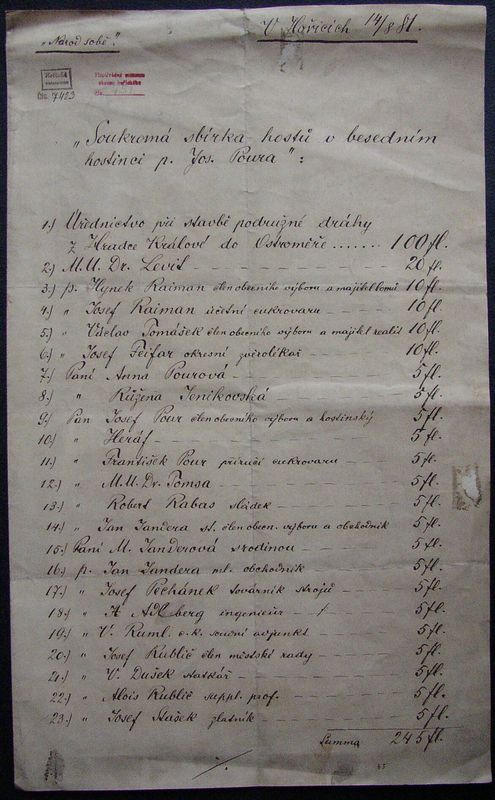 V Hořicích 14/8 81.
„Národ sobě“.
čís. 7423
„Soukromá sbírka hostů v besedním
hostinci p. Jos. Poura“:
1.) Úřednictvo při stavbě podružné dráhy
z Hradce Králové do Ostroměře ....... 100 fl.
2.) M.U. Dr. Levit 20 fl.
3.) p. Hynek Raiman člen obecního výboru a majitel lomů 10 fl.
4.) „ Josef Raiman účetní cukrovaru 10 fl.
5.) „ Václav Tomášek člen obecního výboru a majitel realit 10 fl.
6.) „ Josef Fejfar okresní zvěrolékař 10 fl.
7.) Paní Anna Pourová 5 fl.
8.) „ Růžena Jeníkovská 5 fl.
9.) Pan Josef Pour člen obecního výboru a hostinský 5 fl.
10.) „ Heráf 5 fl.
11.) „ František Pour příručí cukrovaru 5 fl.
12.) „ M.U. Dr. Tomsa 5 fl.
13.) „ Robert Kabas sládek 5 fl.
14.) „ Jan Jandera st. člen obecn. výboru a obchodník 5 fl.
15.) Paní M. Janderová s rodinou 5 fl.
16.) p. Jan Jandera ml. obchodník 5 fl.
17.) „ Josef Pechánek továrník strojů 5 fl.
18.) „ Adlberg ingenieur 5 fl.
19.) „ V. Ruml. c.k. soudní adjunkt 5 fl.
20.) „ Josef Kublič člen městské rady 5 fl.
21.) „ V. Dušek statkář 5 fl.
22.) „ Alois Kublič suppl. prof. 5 fl.
23.) „ Josef Stašek zlatník 5 fl.
Summa 245 fl.